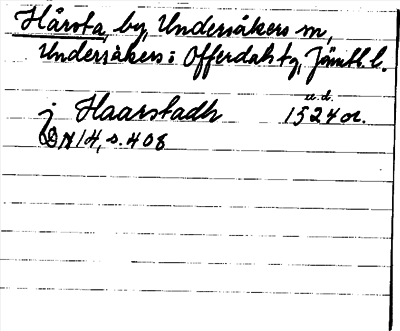 Hårsta, by, Undersåkers sn,
Undersåkers o Offerdals tg, Jämtl. l.
u.d.
j Haarstadh 1524 or.
DN 14, s. 408